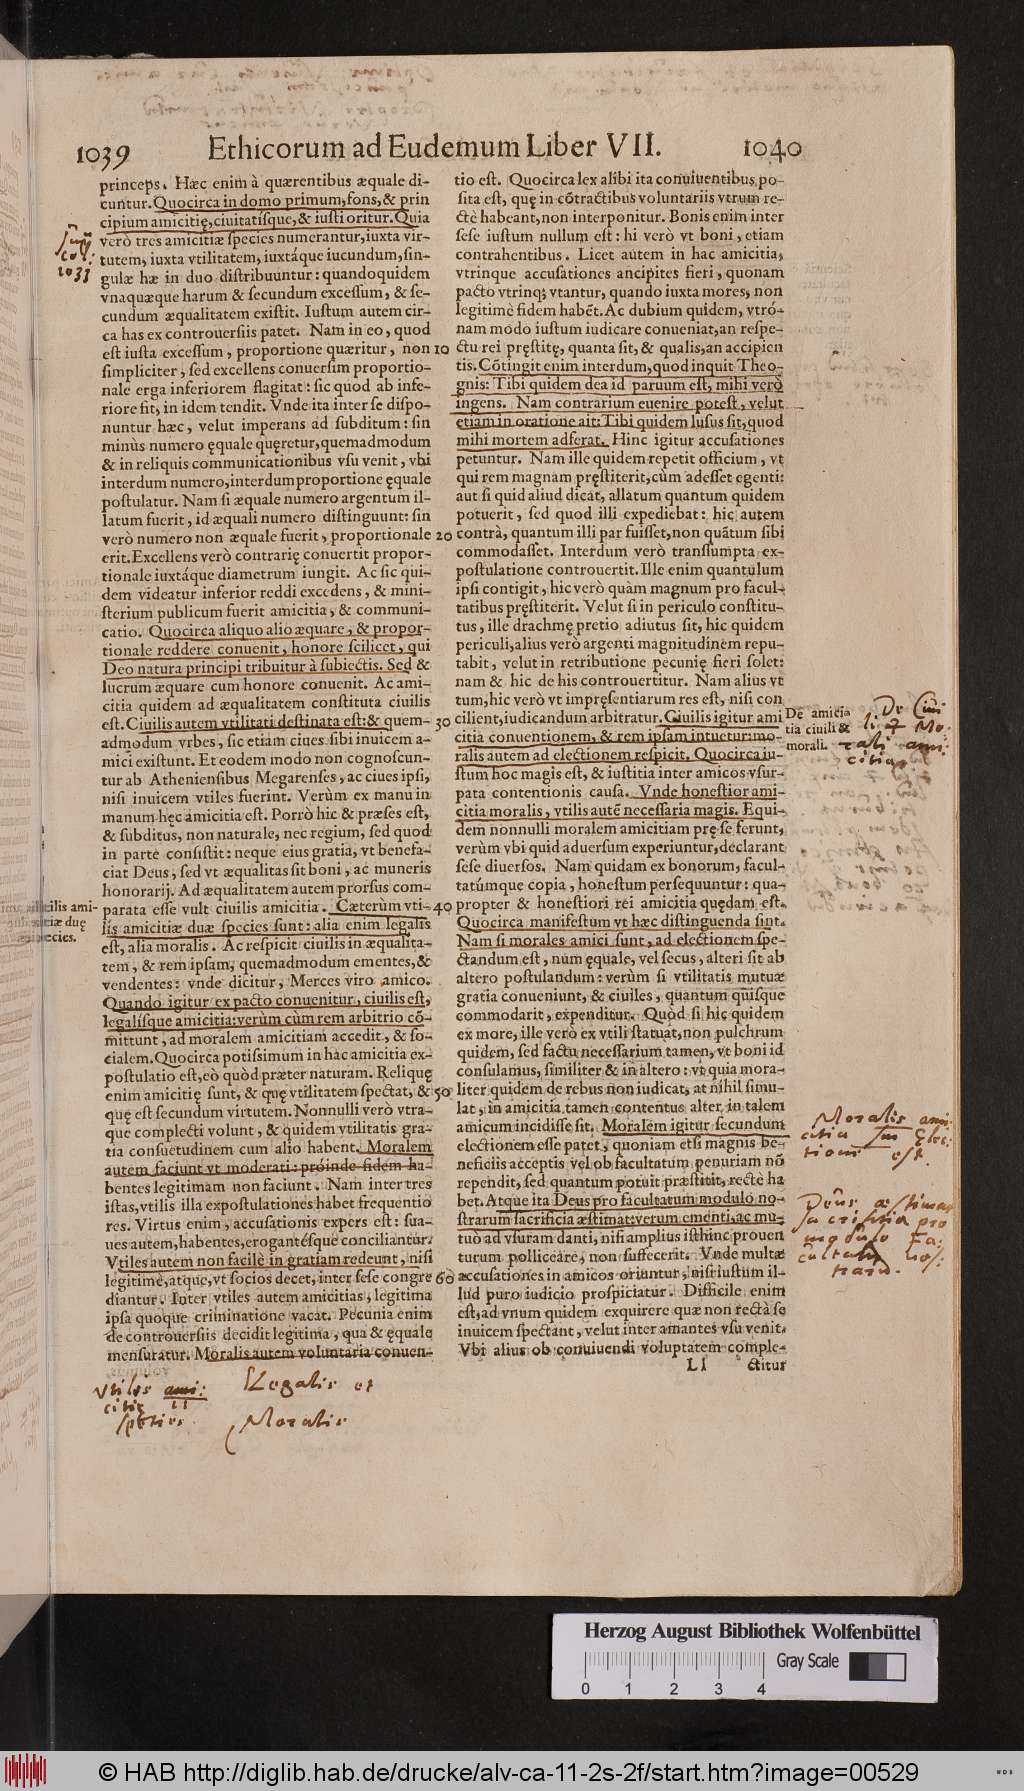 1039 Ethicorum ad Eudemum Liber VII. 1040
princeps. Hæc enim à quærentibus æquale di-
cuntur. Quocirca in domo primum, fons, & prin
cipium amicitię, ciuitatisque, & iusti oritur. Quia
verò tres amicitiæ species numerantur, iuxta vir-
tutem, iuxta vtilitatem, iuxtáque iucundum, sin-
gulæ hæ in duo distribuuntur: quandoquidem
vnaquæque harum & secundum excessum, & se-
cundum æqualitatem existit. Iustum autem cir-
ca has ex controuersiis patet. Nam in eo, quod
est iusta excessum, proportione quæritur, non
simpliciter, sed excellens conuersim proportio-
nale erga inferiorem flagitat: sic quod ab infe-
riore fit, in idem tendit. Vnde ita inter se dispo-
nuntur hæc, velut imperans ad subditum: sin
minùs numero ęquale quęretur, quemadmodum
& in reliquis communicationibus vsu venit, vbi
interdum numero, interdum proportione ęquale
postulatur. Nam si æquale numero argentum il-
latum fuerit, id æquali numero distinguunt: sin
verò numero non æquale fuerit, proportionale
erit. Excellens verò contrarię conuertit propor-
tionale iuxtáque diametrum iungit. Ac sic qui-
dem videatur inferior reddi excedens, & mini-
sterium publicum fuerit amicitia, & communi-
catio. Quocirca aliquo alio æquare, & propor-
tionale reddere conuenit, honore scilicet, qui
Deo natura principi tribuitur à subiectis. Sed &
lucrum æquare cum honore conuenit. Ac ami-
citia quidem ad æqualitatem constituta ciuilis
est. Ciuilis autem vtilitati destinata est: & quem-
admodum vrbes, sic etiam ciues sibi inuicem a-
mici existunt. Et eodem modo non cognoscun-
tur ab Atheniensibus Megarenses, ac ciues ipsi,
nisi inuicem vtiles fuerint. Verùm ex manu in
manum hęc amicitia est. Porrò hic & præses est,
& subditus, non naturale, nec regium, sed quod
in parte consistit: neque eius gratia, vt benefa-
ciat Deus, sed vt æqualitas sit boni, ac muneris
honorarij. Ad æqualitatem autem prorsus com-
parata esse vult ciuilis amicitia. Cæterùm vti-
lis amicitiæ duæ species sunt: alia enim legalis
est, alia moralis. Ac respicit ciuilis in æqualita-
tem, & rem ipsam, quemadmodum ementes, &
vendentes: vnde dicitur, Merces viro amico.
Quando igitur ex pacto conuenitur, ciuilis est,
legalisque amicitia: verùm cùm rem arbitrio cō-
mittunt, ad moralem amicitiam accedit, & so-
cialem. Quocirca potissimum in hac amicitia ex-
postulatio est, eò quòd præter naturam. Reliquę
enim amicitię sunt, & quę vtilitatem spectat, &
quę est secundum virtutem. Nonnulli verò vtra-
que complecti volunt, & quidem vtilitatis gra-
tia consuetudinem cum alio habent. Moralem
autem faciunt vt moderati: proinde fidem ha-
bentes legitimam non faciunt. Nam inter tres
istas, vtilis illa expostulationes habet frequentio
res. Virtus enim, accusationis expers est: sua-
ues autem, habentes, erogantésque conciliantur.
Vtiles autem non facilè in gratiam redeunt, nisi
legitimè, atque, vt socios decet, inter sese congre
diantur. Inter vtiles autem amicitias, legitima
ipsa quoque criminatione vacat. Pecunia enim
de controuersiis decidit legitima, qua & ęquale
mensuratur. Moralis autem voluntaria conuen-
Sup
col:
1033
ciuilis ami-
citiæ duę
species.
Vtilis ami:
citię II
species
Legalis et
Moralis
10
20
30
40
50
60
tio est. Quocirca lex alibi ita conuiuentibus po-
sita est, quę in cōtractibus voluntariis vtrum re-
ctè habeant, non interponitur. Bonis enim inter
sese iustum nullum est: hi verò vt boni, etiam
contrahentibus. Licet autem in hac amicitia,
vtrinque accusationes ancipites fieri, quonam
pacto vtrinq; vtantur, quando iuxta mores, non
legitimè fidem habēt. Ac dubium quidem, vtró-
nam modo iustum iudicare conueniat, an respe-
ctu rei pręstitę, quanta sit, & qualis, an accipien
tis. Cōtingit enim interdum, quod inquit Theo-
gnis: Tibi quidem dea id paruum est, mihi verò
ingens. Nam contrarium euenire potest, velut
etiam in oratione ait: Tibi quidem lusus sit, quod
mihi mortem adferat. Hinc igitur accusationes
petuntur. Nam ille quidem repetit officium, vt
qui rem magnam pręstiterit, cùm adesset egenti:
aut si quid aliud dicāt, allatum quantum quidem
potuerit, sed quod illi expediebat: hic autem
contrà, quantum illi par fuisset, non quātum sibi
commodasset. Interdum verò transsumpta ex-
postulatione controuertit. Ille enim quantulum
ipsi contigit, hic verò quàm magnum pro facul-
tatibus pręstiterit. Velut si in periculo constitu-
tus, ille drachmę pretio adiutus sit, hic quidem
periculi, alius verò argenti magnitudinem repu-
tabit, velut in retributione pecunię fieri solet:
nam & hic de his controuertitur. Nam alius vt
tum, hic verò vt impręsentiarum res est, nisi con
cilient, iudicandum arbitratur. Ciuilis igitur ami
citia conuentionem, & rem ipsam intuetur: mo-
ralis autem ad electionem respicit. Quocirca iu-
stum hoc magis est, & iustitia inter amicos vsur-
pata contentionis causa. Vnde honestior ami-
citia moralis, vtilis autē necessaria magis. Equi-
dem nonnulli moralem amicitiam prę se ferunt,
verùm vbi quid aduersum experiuntur, declarant
sese diuersos. Nam quidam ex bonorum, facul-
tatúmque copia, honestum persequuntur: qua-
propter & honestiori rei amicitia quędam est.
Quocirca manifestum vt hæc distinguenda sint.
Nam si morales amici sunt, ad electionem spe-
ctandum est, num ęquale, vel secus, alteri sit ab
altero postulandum: verùm si vtilitatis mutuæ
gratia conueniunt, & ciuiles, quantum quisque
commodarit, expenditur. Quòd si hic quidem
ex more, ille verò ex vtili statuat, non pulchrum
quidem, sed factu necessarium tamen, vt boni id
consulamus, similiter & in altero: vt quia mora-
liter quidem de rebus non iudicat, at nihil simu-
lat, in amicitia tamen contentus alter in talem
amicum incidisse sit. Moralem igitur secundum
electionem esse patet, quoniam etsi magnis be-
neficiis acceptis vel ob facultatum penuriam nō
rependit, sed quantum potuit præstitit, rectè ha
bet. Atque ita Deus pro facultatum modulo no-
strarum sacrificia æstimat: verum ementi, ac mu-
tuò ad vsuram danti, nisi amplius isthinc prouen
turum polliceare, non suffecerit. Vnde multæ
accusationes in amicos oriuntur, nisi iustum il-
lud puro iudicio prospiciatur. Difficile enim
est, ad vnum quidem exquirere quæ non rectà se
inuicem spectant, velut inter amantes vsu venit.
Vbi alius ob conuiuendi voluptatem comple-
Ll ctitur
De amici-
tia ciuili &
morali.
De Ciui
li & Mo:
rali ami:
citia.
Moralis ami
citia sm Elec:
tionē est.
Deus æstimat
sacrificia pro
modulo Fa:
cultatum nos:
trarū.
Herzog August Bibliothek Wolfenbüttel
Gray Scale
0 1 2 3 4
© HAB http://diglib.hab.de/drucke/alv-ca-11-2s-2f/start.htm?image=00529